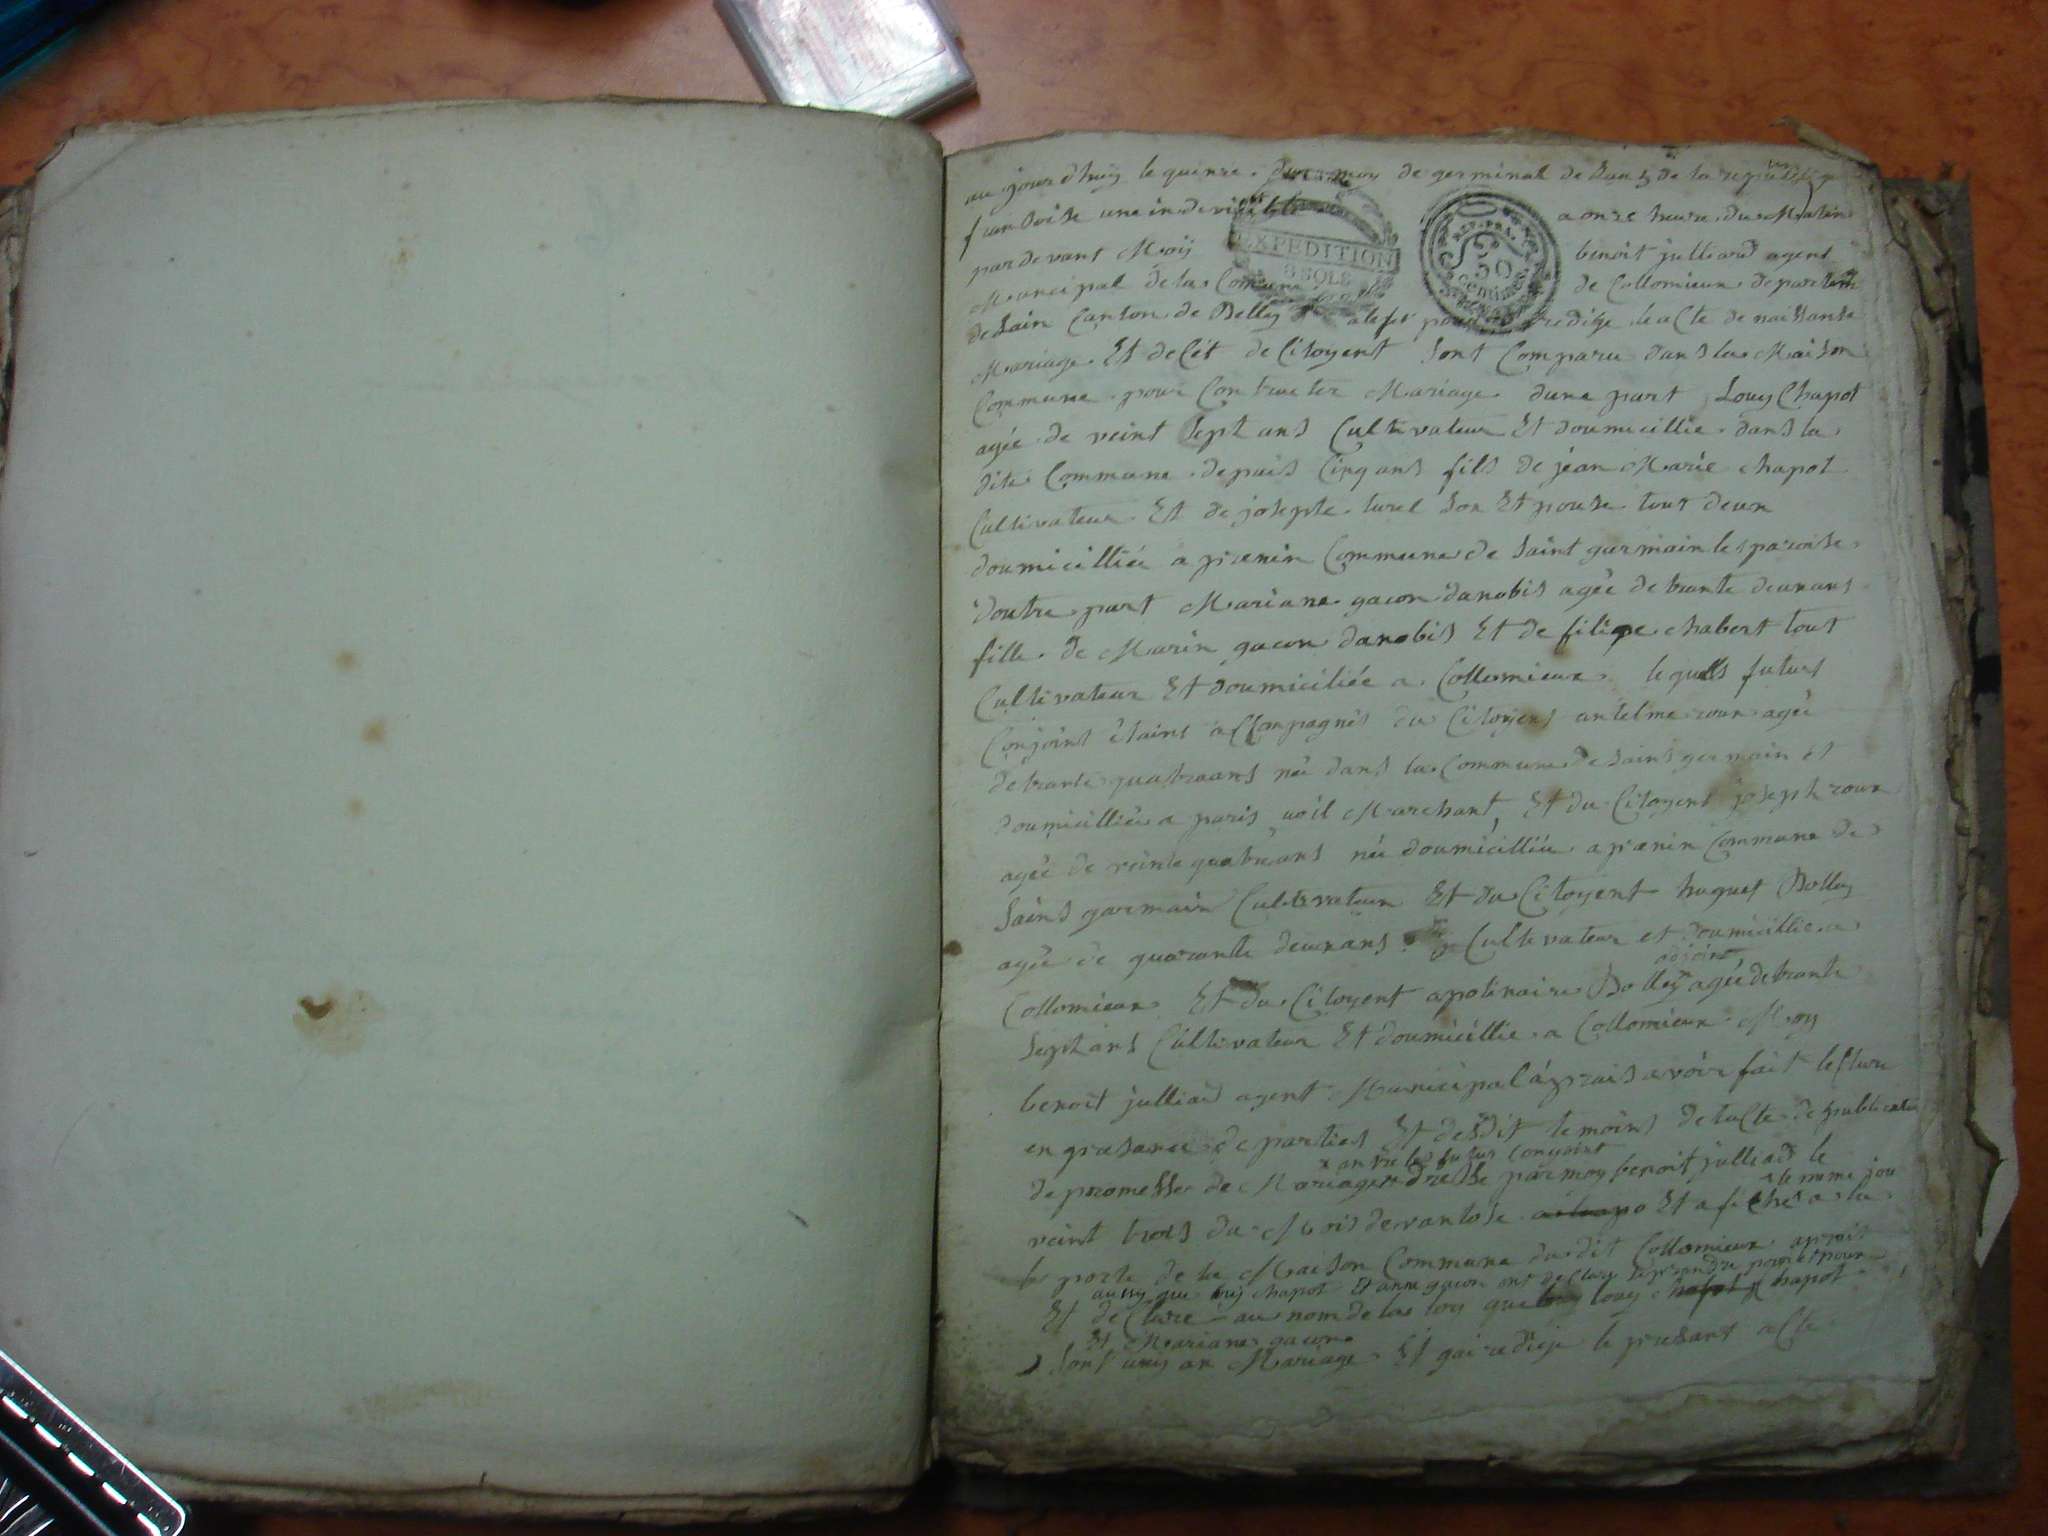 au jourdhuy le quinze du moy de germinal de lan 5 de la republique
fransoise une indevisible a onze heure du Matin
par devant Moÿ benoit julliard agent
Municipal de la Comune de Collomieux departem
de lain Canton de Belley EXPEDITION 8 SOLS REP. FRA. 50 Centimes redige le acte de naissanse
Mariage Et decét de Citoyent sont Comparu dans la Maison
Commune pour Contracter Mariage dune part Louy Chapot
agée de veint sept ans Cultivateur Et doumicillie dans la
dite Commune depuis Cinq ans fils de jean Marie chapot
Cultivateur Et de josepte turel son Et pouse tout deux
doumicilliée a premin Commune de saint germain les paroise
doutre part Mariane gacon danobis agée de trante deux ans
fille de Marin gacon danobis Et de filipe chabert tout
Cultivateur Et doumiciliée a Collomieux lequells futurs
Conjoint étains acCompagnés du Citoyens antelme roux agée
de trante quatre ans née dans la Commune de saint germain et
doumicilliée a paris Marchant, Et du Citoyent joseph roux
agée de veinte quatre ans née doumicilliée a premin Commune de
saint garmain Cultivateur Et du Citoyent huguet Bolley
agée de quarante deux ans Cultivateur et doumicillie a
adjoint
Collomieux Et du Citoyent apolinaire Bolley agée de trante
sept ans Cultivateur Et doumicillie a Collomieux Moy
benoit julliard agent Municipal áprais avoir fait lecture
en presance de parties Et desdit temoins de lacte de publication
x antre les futur conjoint
de promesse de Mariage x dresse par moy benoit julliard le
le meme jou
veint trois du Mois de vantose Et afiche a la
la porte de la Maison Commune du dit Collomieux aprais
aussy que louy chapot Et anne gacon ont declare se prandre pour Et poux
Et declare au nom de la loy que louy chapot
Et Mariane gacon
sont unis an Mariage Et gai redige le presant acte